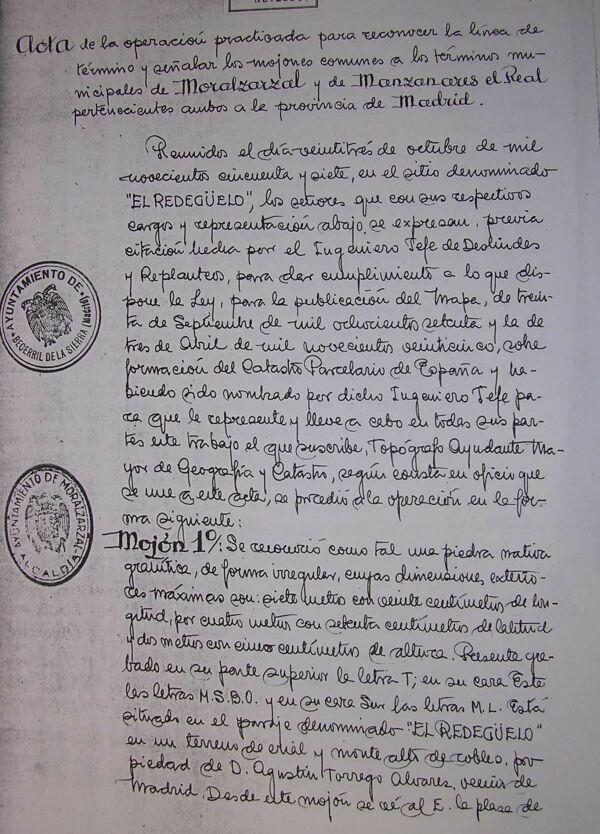 Acta de la operación practicada para reconocer la línea de
término y señalar los mojones comunes a los términos mu-
nicipales de Moralzarzal y de Manzanares el Real
pertenecientes ambos a la provincia de Madrid.
Reunidos el día veintitrés de octubre de mil
novecientos cincuenta y siete, en el sitio denominado
"EL REDEGÜELO", los señores que con sus respectivos
cargos y representación abajo se expresan, previa
citación hecha por el Ingeniero Jefe de Deslindes
y Replanteos, para dar cumplimiento a lo que dis-
pone la Ley, para la publicación del Mapa, de trein-
ta de Septiembre de mil ochocientos setenta y la de
tres de Abril de mil novecientos veinticinco, sobre
formación del Catastro Parcelario de España y ha-
biendo sido nombrado por dicho Ingeniero Jefe pa-
ra que le represente y lleve a cabo en todas sus par-
tes este trabajo el que suscribe, Topógrafo Ayudante Ma-
yor de Geografía y Catastro, según consta en oficio que
se une a este acta, se procedió a la operación en la for-
ma siguiente:
Mojón 1º: Se reconoció como tal una piedra nativa
granítica, de forma irregular, cuyas dimensiones exterio-
res máximas son: siete metros con veinte centímetros de lon-
gitud, por cuatro metros con setenta centímetros de latitud
y dos metros con cinco centímetros de altura. Presenta gra-
bado en su parte superior la letra T; en su cara Este
las letras M.S.B.O. y en su cara Sur las letras M.L. Está
situado en el paraje denominado "EL REDEGÜELO"
en un terreno de erial y monte alto de robles, pro
piedad de D. Agustín Torrego Alvares, vecino de
Madrid. Desde este mojón se vé al E. la plaza de
AYUNTAMIENTO DE
BECERRIL DE LA SIERRA (MADRID)
AYUNTAMIENTO DE MORALZARZAL
ALCALDÍA